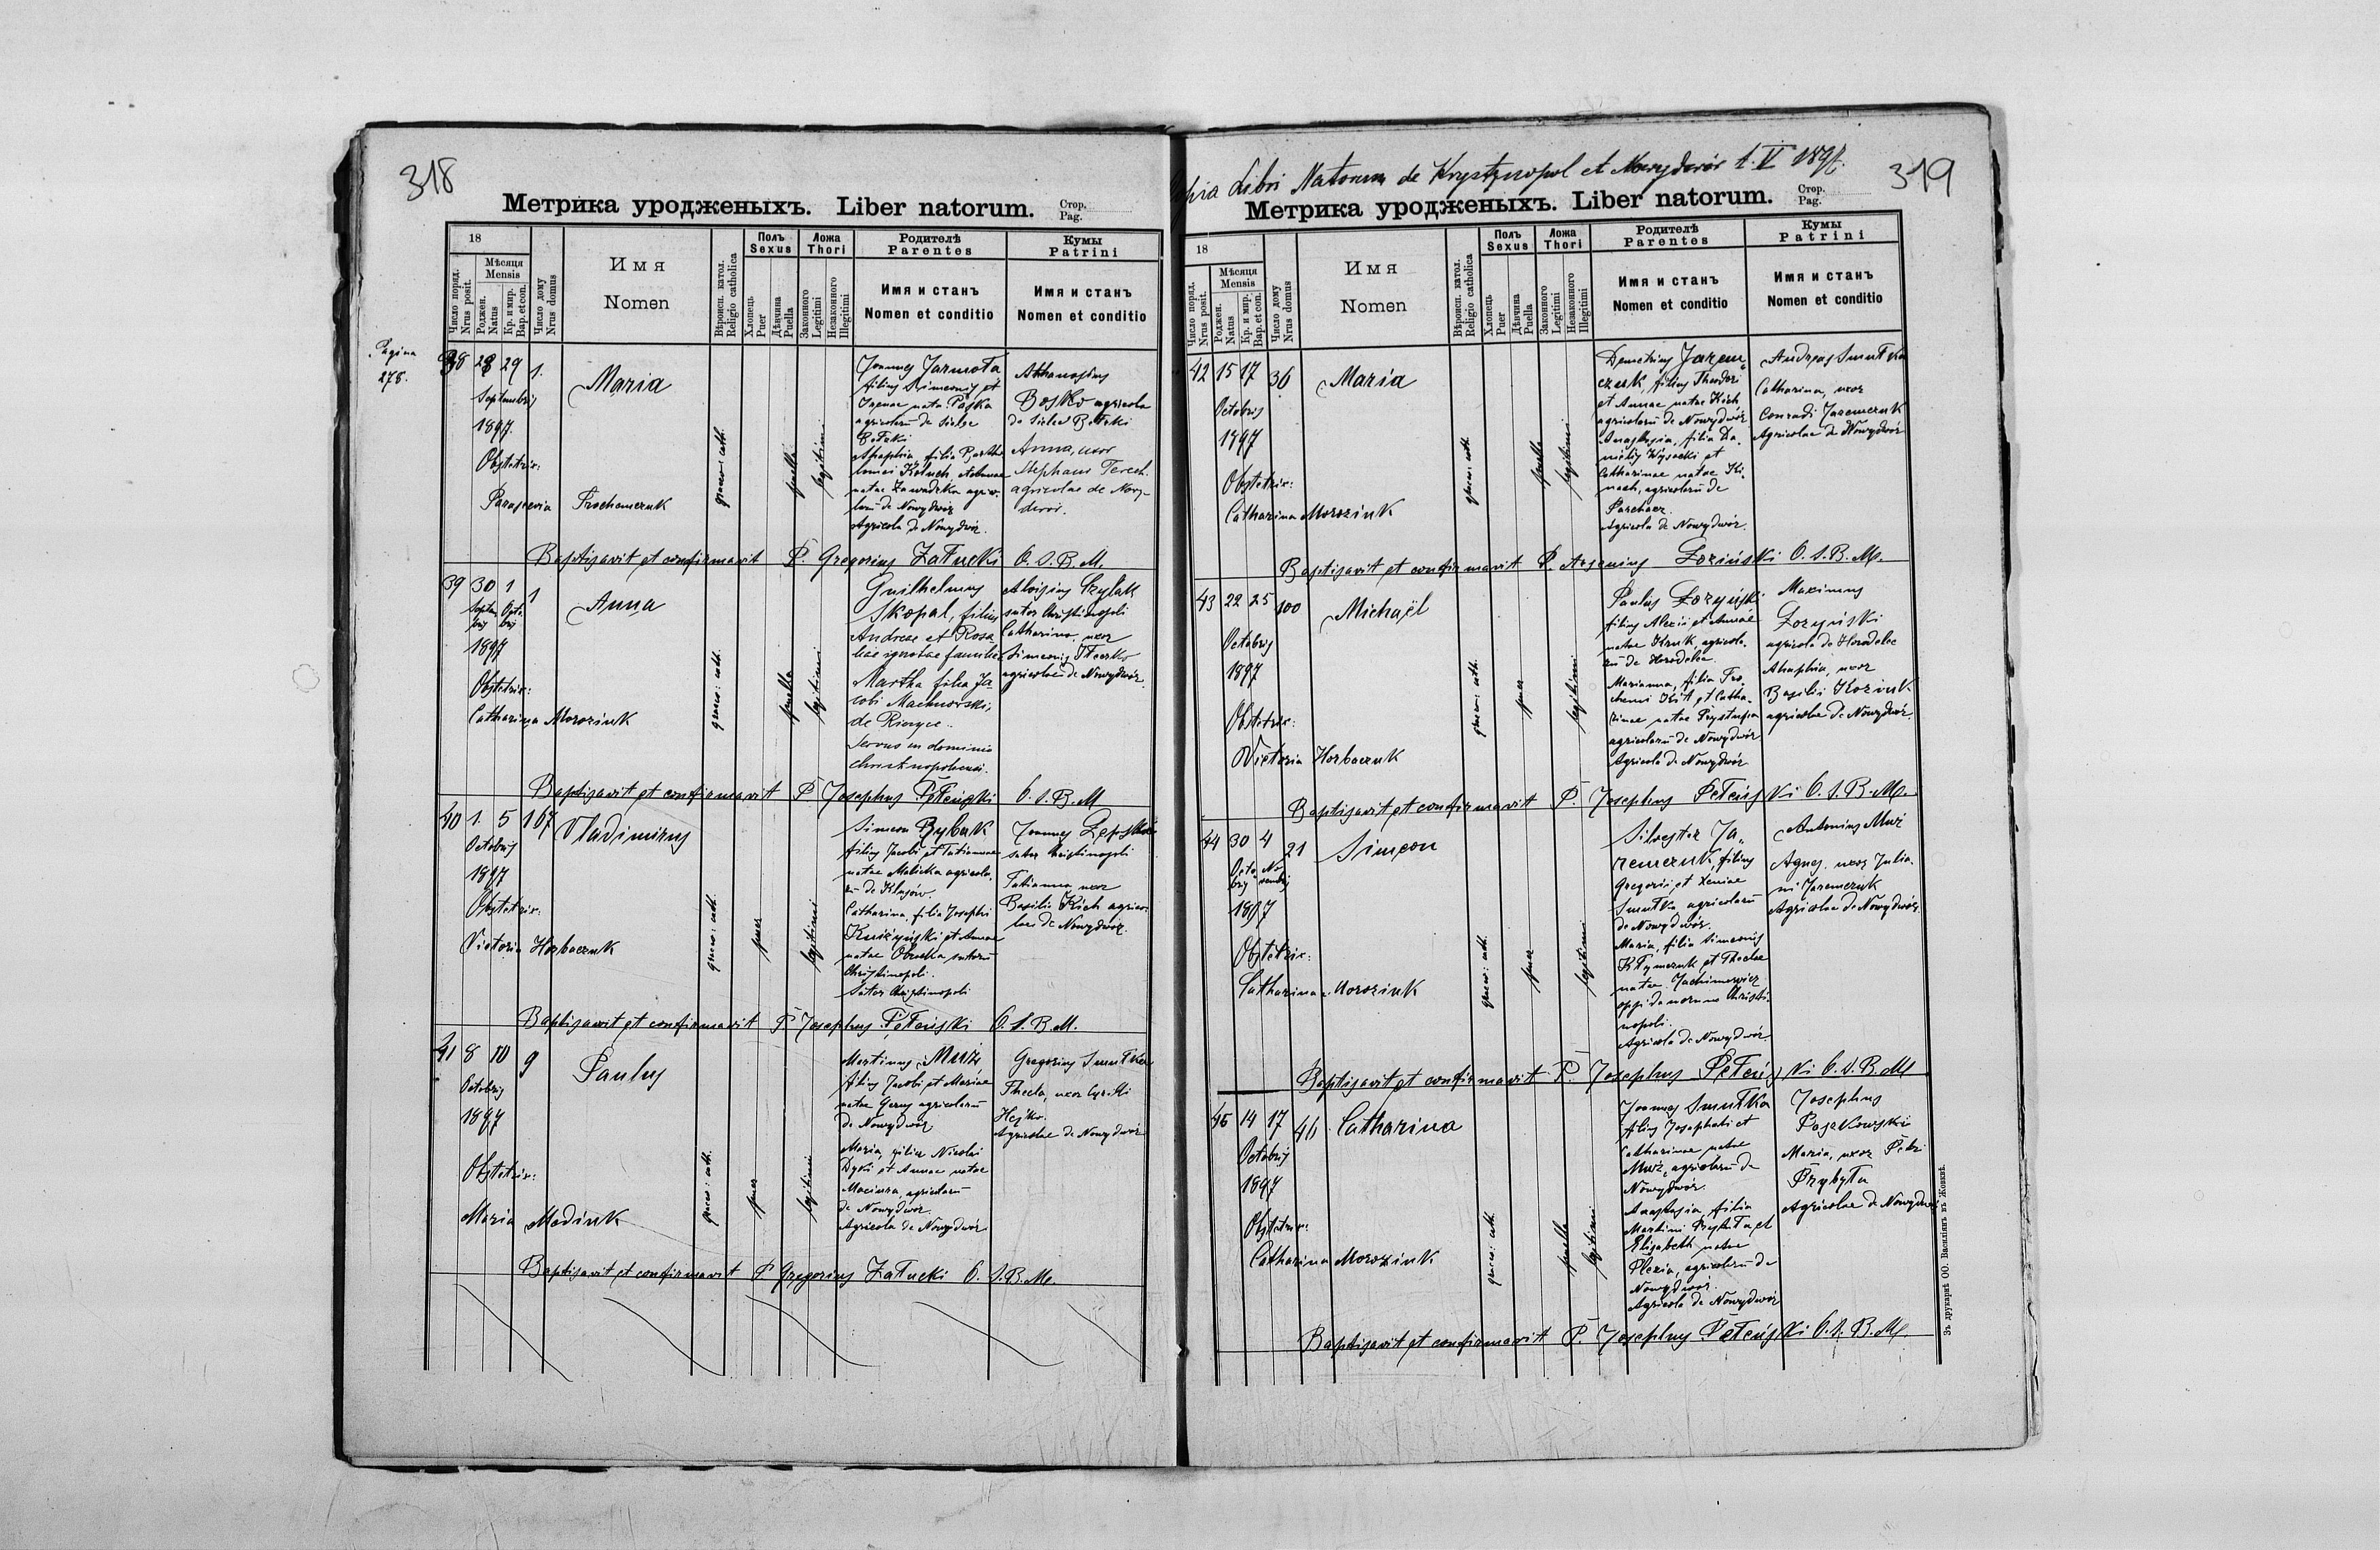 318
Метрика уродженыхъ. Liber natorum.
Стор.
Pag.
18
Число поряд.
Nrus posit.
Мѣсяця
Mensis
Роджен.
Natus
Кр. и мир.
Bap. et con.
Число дому
Nrus domus
Имя
Nomen
Вѣроисп. катол.
Religio catholica
Полъ
Sexus
Хлопець
Puer
Дѣвчина
Puella
Ложа
Thori
Законного
Legitimi
Незаконного
Illegitimi
Родителѣ
Parentes
Имя и станъ
Nomen et conditio
Кумы
Patrini
Имя и станъ
Nomen et conditio
Pagina
278.
38 28 29 1.
Septembris
1897.
Obstetrix:
Parascevia Prochemczuk
Maria
graeco: cath.
puella
legitimi
Joannes Jarmoła
filius Simeonis et
natae Pajka
agricolarū de Sielec
Bełzki
filia Barth
lomei
natae Zawadzka agrico-
larū de Nowydwór
Agricola de Nowydwór.
Athanasius
Bojko agricola
de Sielec Bełzki
Anna, uxor
Stephani Terech.
agricolae de Nowy-
dwór.
Baptisavit et confirmavit P. Gregorius Załucki O. S. B. M.
39 30 1 1
Septembris Octobris
1897
Obstetrix:
Catharina Moroziuk
Anna
graeco: cath.
puella
legitimi
Guilhelmus
Skopal, filius
Andreae et Rosa
liae ignotae familiae
Martha filia Ja
cobi Machnowski,
de
Servus in dominio
christinopolensi.
Aloisius Czylak
sutor Christinopoli
Catharina, uxor
Simeonis
agricolae de Nowydwór.
Baptisavit et confirmavit P. Josephus Pełeński O. S. B. M
40 1. 5 167
Octobris
1897
Obstetrix:
Victoria Horbaczuk
Vladimirus
graeco: cath.
puer
legitimi
Simeon Rybak
filius Jacobi et Tatiannae
natae Malicka agricola.
rū de Klusów.
Catharina, filia Josephi
et Annae
natae sutorū
Christinopoli.
Sutor Christinopoli
Joannes
sutor Christinopoli
Tatianna uxor
Basilii Kich agrico-
lae de Nowydwór.
Baptisavit et confirmavit P. Josephus Pełeński O. S. B. M.
41 8 10 9
Octobris
1897
Obstetrix:
Maria Madiuk
Paulus
graeco: cath.
puer
legitimi
Martinus Muż
filius Jacobi et Mariae
natae agricolarū
de Nowydwór
Maria, filia Nicolai
et Annae natae
Maciura, agricolarū
de Nowydwór.
Agricola de Nowydwór
Gregorius Smutka
Thecla, uxor Cyrilli
Hejko.
Agricolae de Nowydwór
Baptisavit et confirmavit P Gregorius Załucki O. S. B. M.
319
Libri Natorum de Krystynopol et Nowydwór t. V 1897.
Метрика уродженыхъ. Liber natorum.
Стор.
Pag.
18
Число поряд.
Nrus posit.
Мѣсяця
Mensis
Роджен.
Natus
Кр. и мир.
Bap. et con.
Число дому
Nrus domus
Имя
Nomen
Вѣроисп. катол.
Religio catholica
Полъ
Sexus
Хлопець
Puer
Дѣвчина
Puella
Ложа
Thori
Законного
Legitimi
Незаконного
Illegitimi
Родителѣ
Parentes
Имя и станъ
Nomen et conditio
Кумы
Patrini
Имя и станъ
Nomen et conditio
42 15 17 36
Octobris
1897
Obstetrix:
Catharina Moroziuk
Maria
graeco: cath.
puella
legitimi
Demetrius Jarem„
czuk, filius Theodori
et Annae natae Kich
agricolarū de Nowydwór
Anastasia, filia Da.
nielis Wysocki et
Catharinae natae
agricolarū de
Parchacz.
Agricola de Nowydwór.
Andreas Smutka
Catharina, uxor
Conradi Jaremczuk
Agricolae de Nowydwór
Baptisavit et confirmavit P. Arsenius Łoziński O. S. B. M.
43 22 25 100
Octobris
1897
Obstetrix:
Victoria Horbaczuk
Michaël
graeco: cath.
puer
legitimi
Paulus Łozyński
filius Alexii et Annae
natae Kruk agricola.
rū de Horodelec.
Marianna, filia Pro„
Kit et Catha„
rinae natae Prystupa
agricolarū de Nowydwór
Agricola de Nowydwór
Maximus
Łozyński
agricola de Horodelec
Ahaphia, uxor
Basilii Koziuk
agricolae de Nowydwór.
Baptisavit et confirmavit P. Josephus Pełeński O. S. B. M.
44 30 4 21
Octobris Novembris
1897
Obstetrix:
Catharina Moroziuk
Simeon
graeco: cath.
puer
legitimi
Silvester Ja„
remczuk, filius
Gregorii et Xeniae
Smutka agricolarū
de Nowydwór.
Maria, filia Simeonis
Kłymczuk et Theclae
natae Jachimowicz
oppidanorum Christi„
nopoli.
Agricola de Nowydwór.
Antonius Muż
Agnes, uxor Julia„
ni Jaremczuk
Agricolae de Nowydwór.
Baptisavit et confirmavit P. Josephus Pełeński O. S. B. M
45 14 17 46
Octobris
1897
Obstetrix:
Catharina Moroziuk
Catharina
graeco: cath.
puella
legitimi
Joannes Smutka
filius Josephati et
Catharinae natae
Muż, agricolarū de
Nowydwór.
Anastasia, filia
Martini Przybyła et
Elisabeth natae
agricolarū de
Nowydwór.
Agricola de Nowydwór
Josephus
Paszkowski
Maria, uxor Petri
Przybyła
Agricolae de Nowydwór
Baptisavit et confirmavit P. Josephus Pełeński O. S. B. M.
Зъ друкарнѣ ОО. Василіянъ въ Жовквѣ.